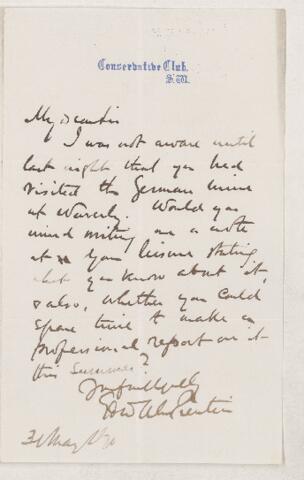 Conservative Club.
S.W.
My dear Sir
I was not aware until
last night that you had
visited the German mine
at Waverly. Would you
mind writing me a note
at your leisure stating
what you know about it,
& also, whether you could
spare time to make a
professional report on it
this summer?
Yrs faithfully
31 May